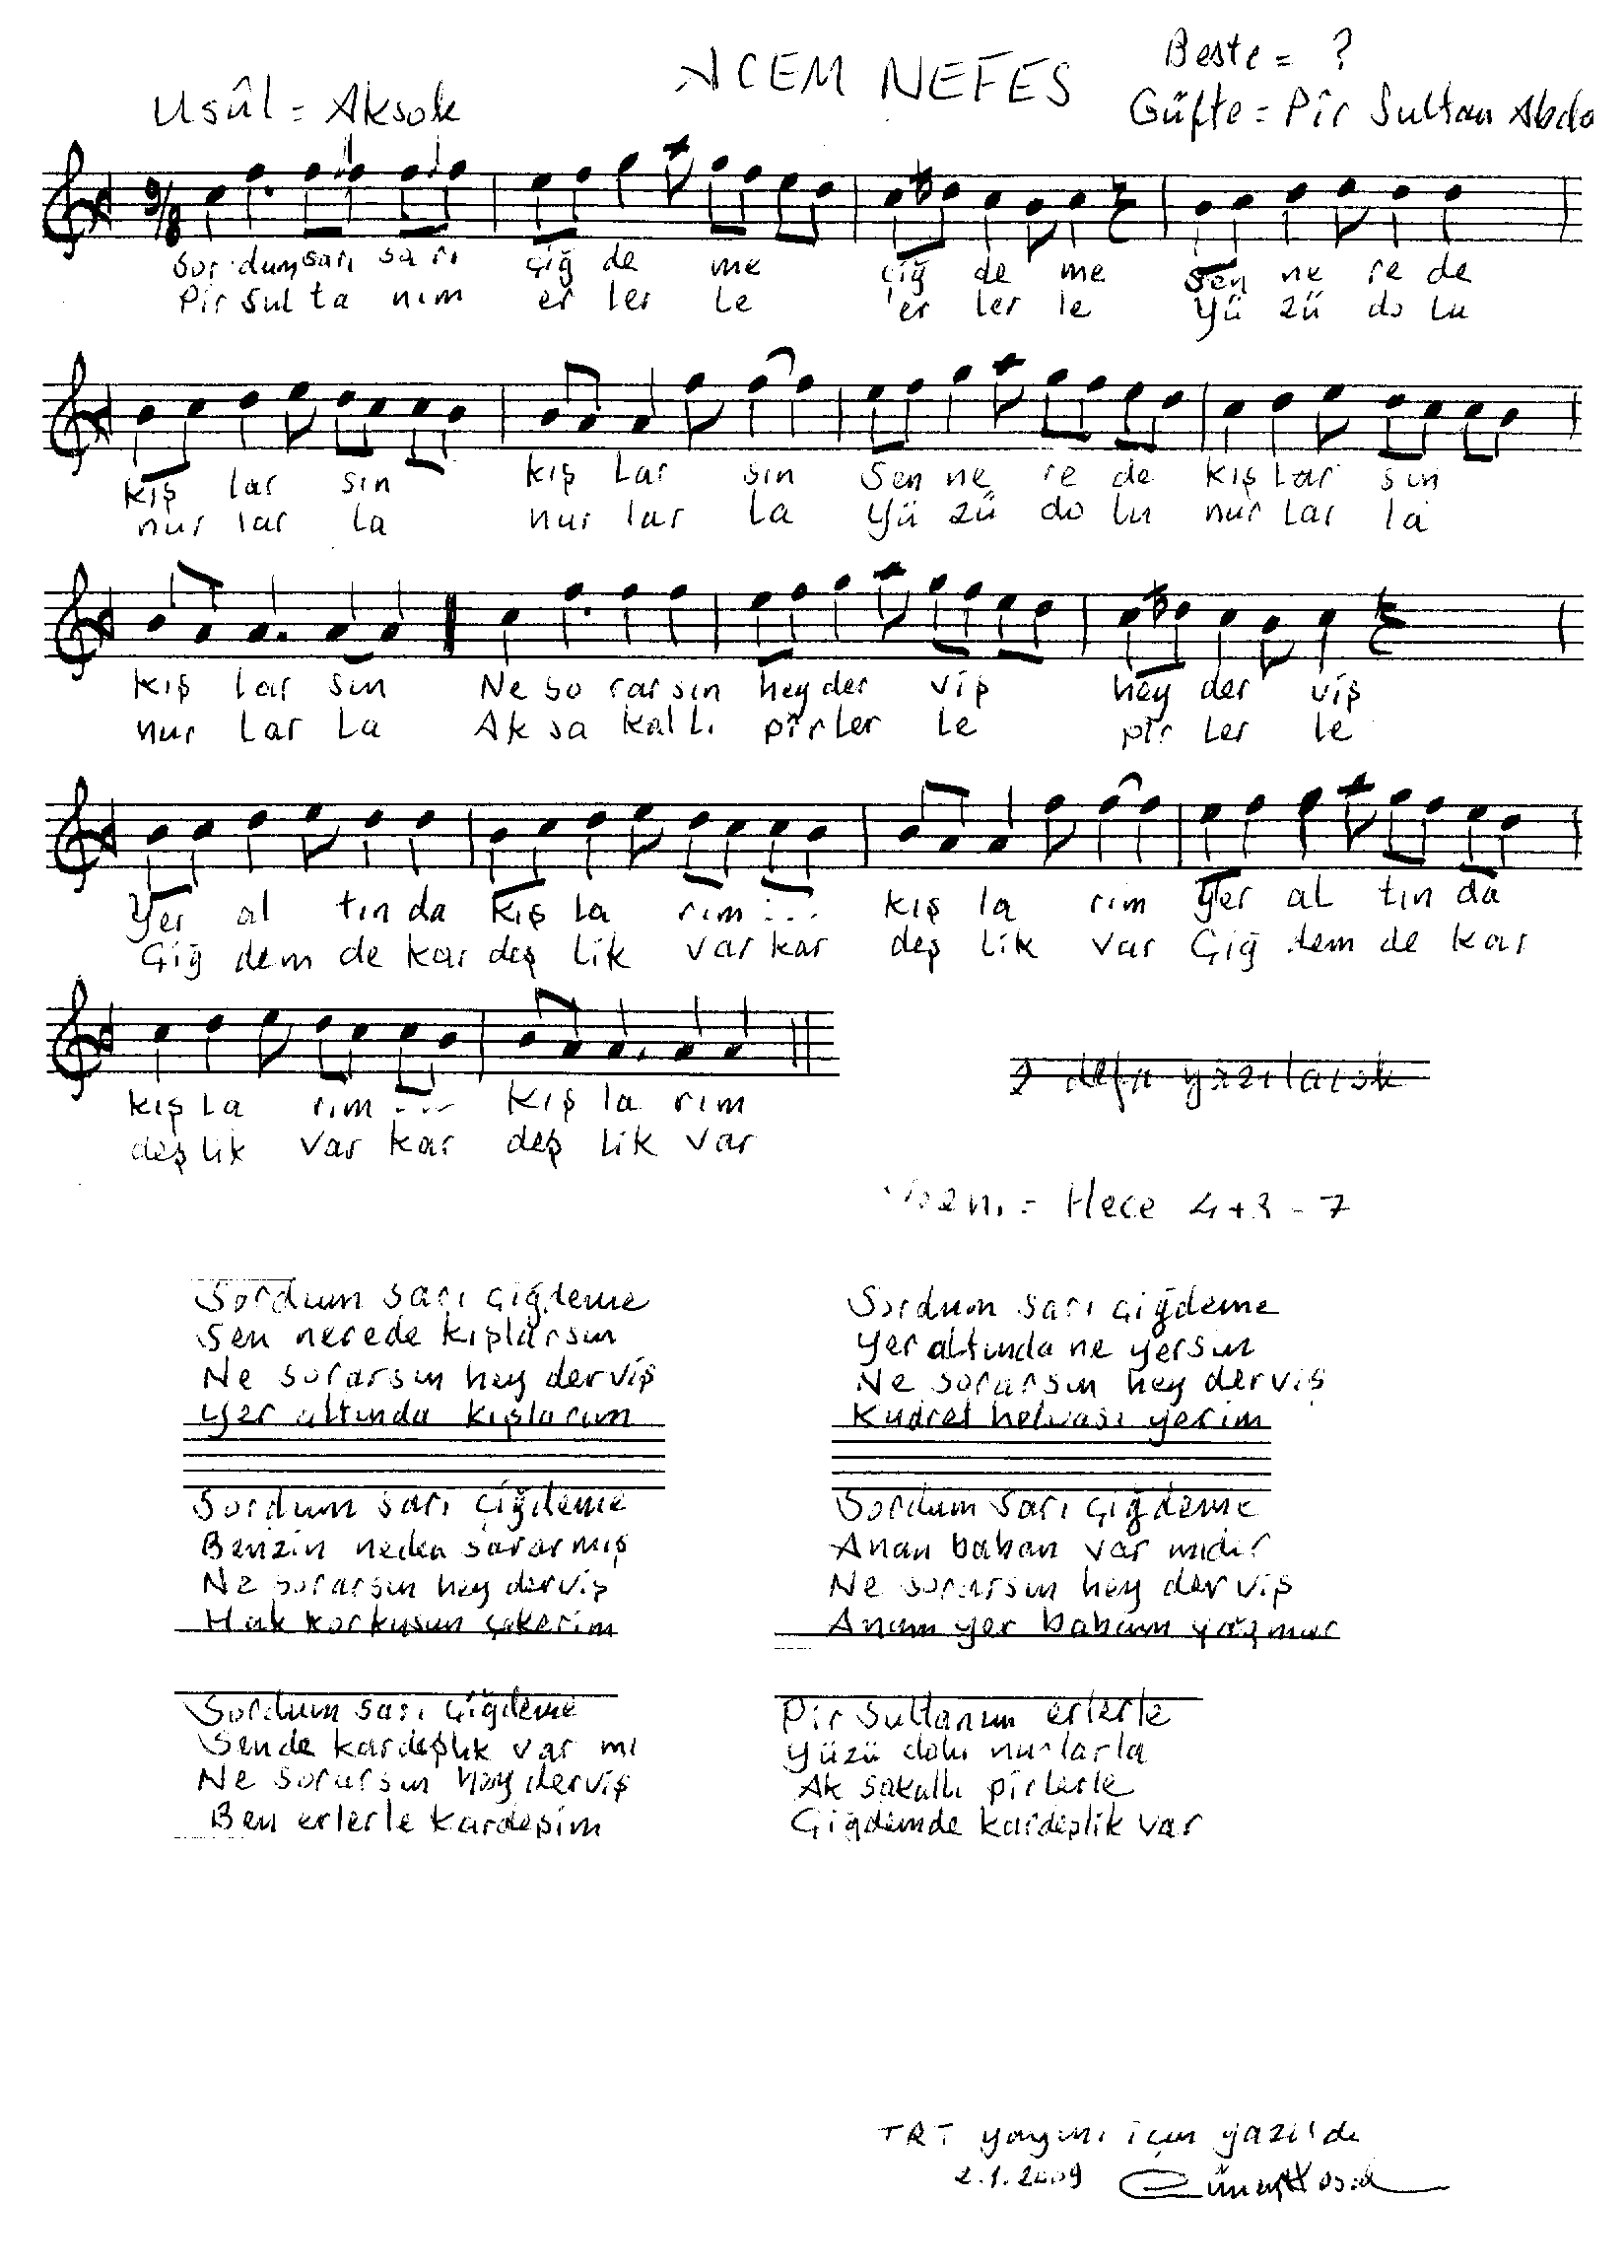 ACEM NEFES
Beste = ?
Usûl = Aksak
Güfte = Pîr Sultan Abda
9/8
Sor dum sarı sa rı çiğ de me çiğ de me Sen ne re de
Pir Sul ta nım er ler le er ler le Yü zü do lu
kış lar sın kış lar sın Sen ne re de kış lar sın
nur lar la nur lar la Yü zü do lu nur lar la
kış lar sın Ne so rar sın hey der viş hey der viş
nur lar la Ak sa kal lı pîr ler le pîr ler le
Yer al tın da kış la rım ... kış la rım Yer al tın da
Çiğ dem de kar deş lik var kar deş lik var Çiğ dem de kar
kış la rım ... kış la rım
deş lik var kar deş lik var
2 defa yazılacak
= Hece 4+3 = 7
Sordum sarı çiğdeme
Sen nerede kışlarsın
Ne sorarsın hey derviş
Yer altında kışlarım
Sordum sarı çiğdeme
Yer altında ne yersin
Ne sorarsın hey derviş
Kudret helvası yerim
Sordum sarı çiğdeme
Benzin neden sararmış
Ne sorarsın hey derviş
Hak korkusun çekerim
Sordum sarı çiğdeme
Anan baban var mıdır
Ne sorarsın hey derviş
Anam yer babam yağmur
Sordum sarı çiğdeme
Sende kardeşlik var mı
Ne sorarsın hey derviş
Ben erlerle kardeşim
Pir Sultanım erlerle
Yüzü dolu nurlarla
Ak sakallı pîrlerle
Çiğdemde kardeşlik var
TRT yayını için yazıldı
2.1.2009